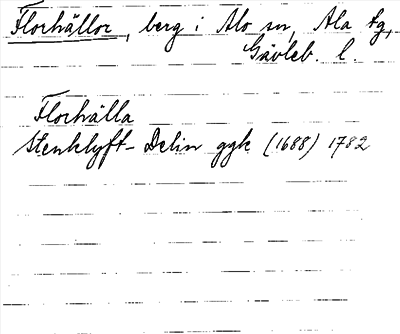 Florhällor, berg i Alo sn, Ala tg,
Gävleb. l.
Florhälla
Stenklyft- Delin gyk (1688) 1782